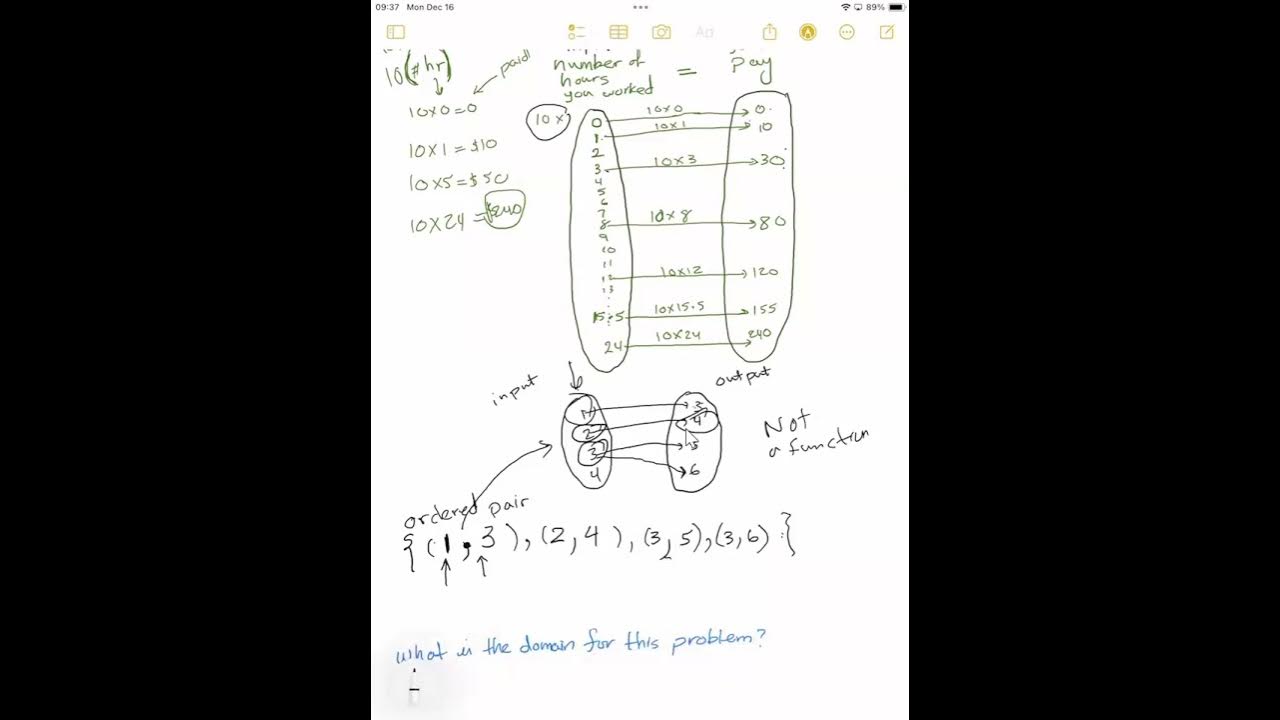 09:37 Mon Dec 16
89%
Aa
10(# hr)
paid
10x0=0
10x1=$10
10x5=$50
10x24=$240
number of
hours
you worked
=
pay
10x
0 10x0 0
1 10x1 10
2
3 10x3 30
4
5
6
7
8 10x8 80
9
10
11
12 10x12 120
13
15.5 10x15.5 155
24 10x24 240
input
output
1 3
2 4
3 5
4 6
Not
a function
ordered pair
{(1,3),(2,4),(3,5),(3,6)}
what is the domain for this problem?